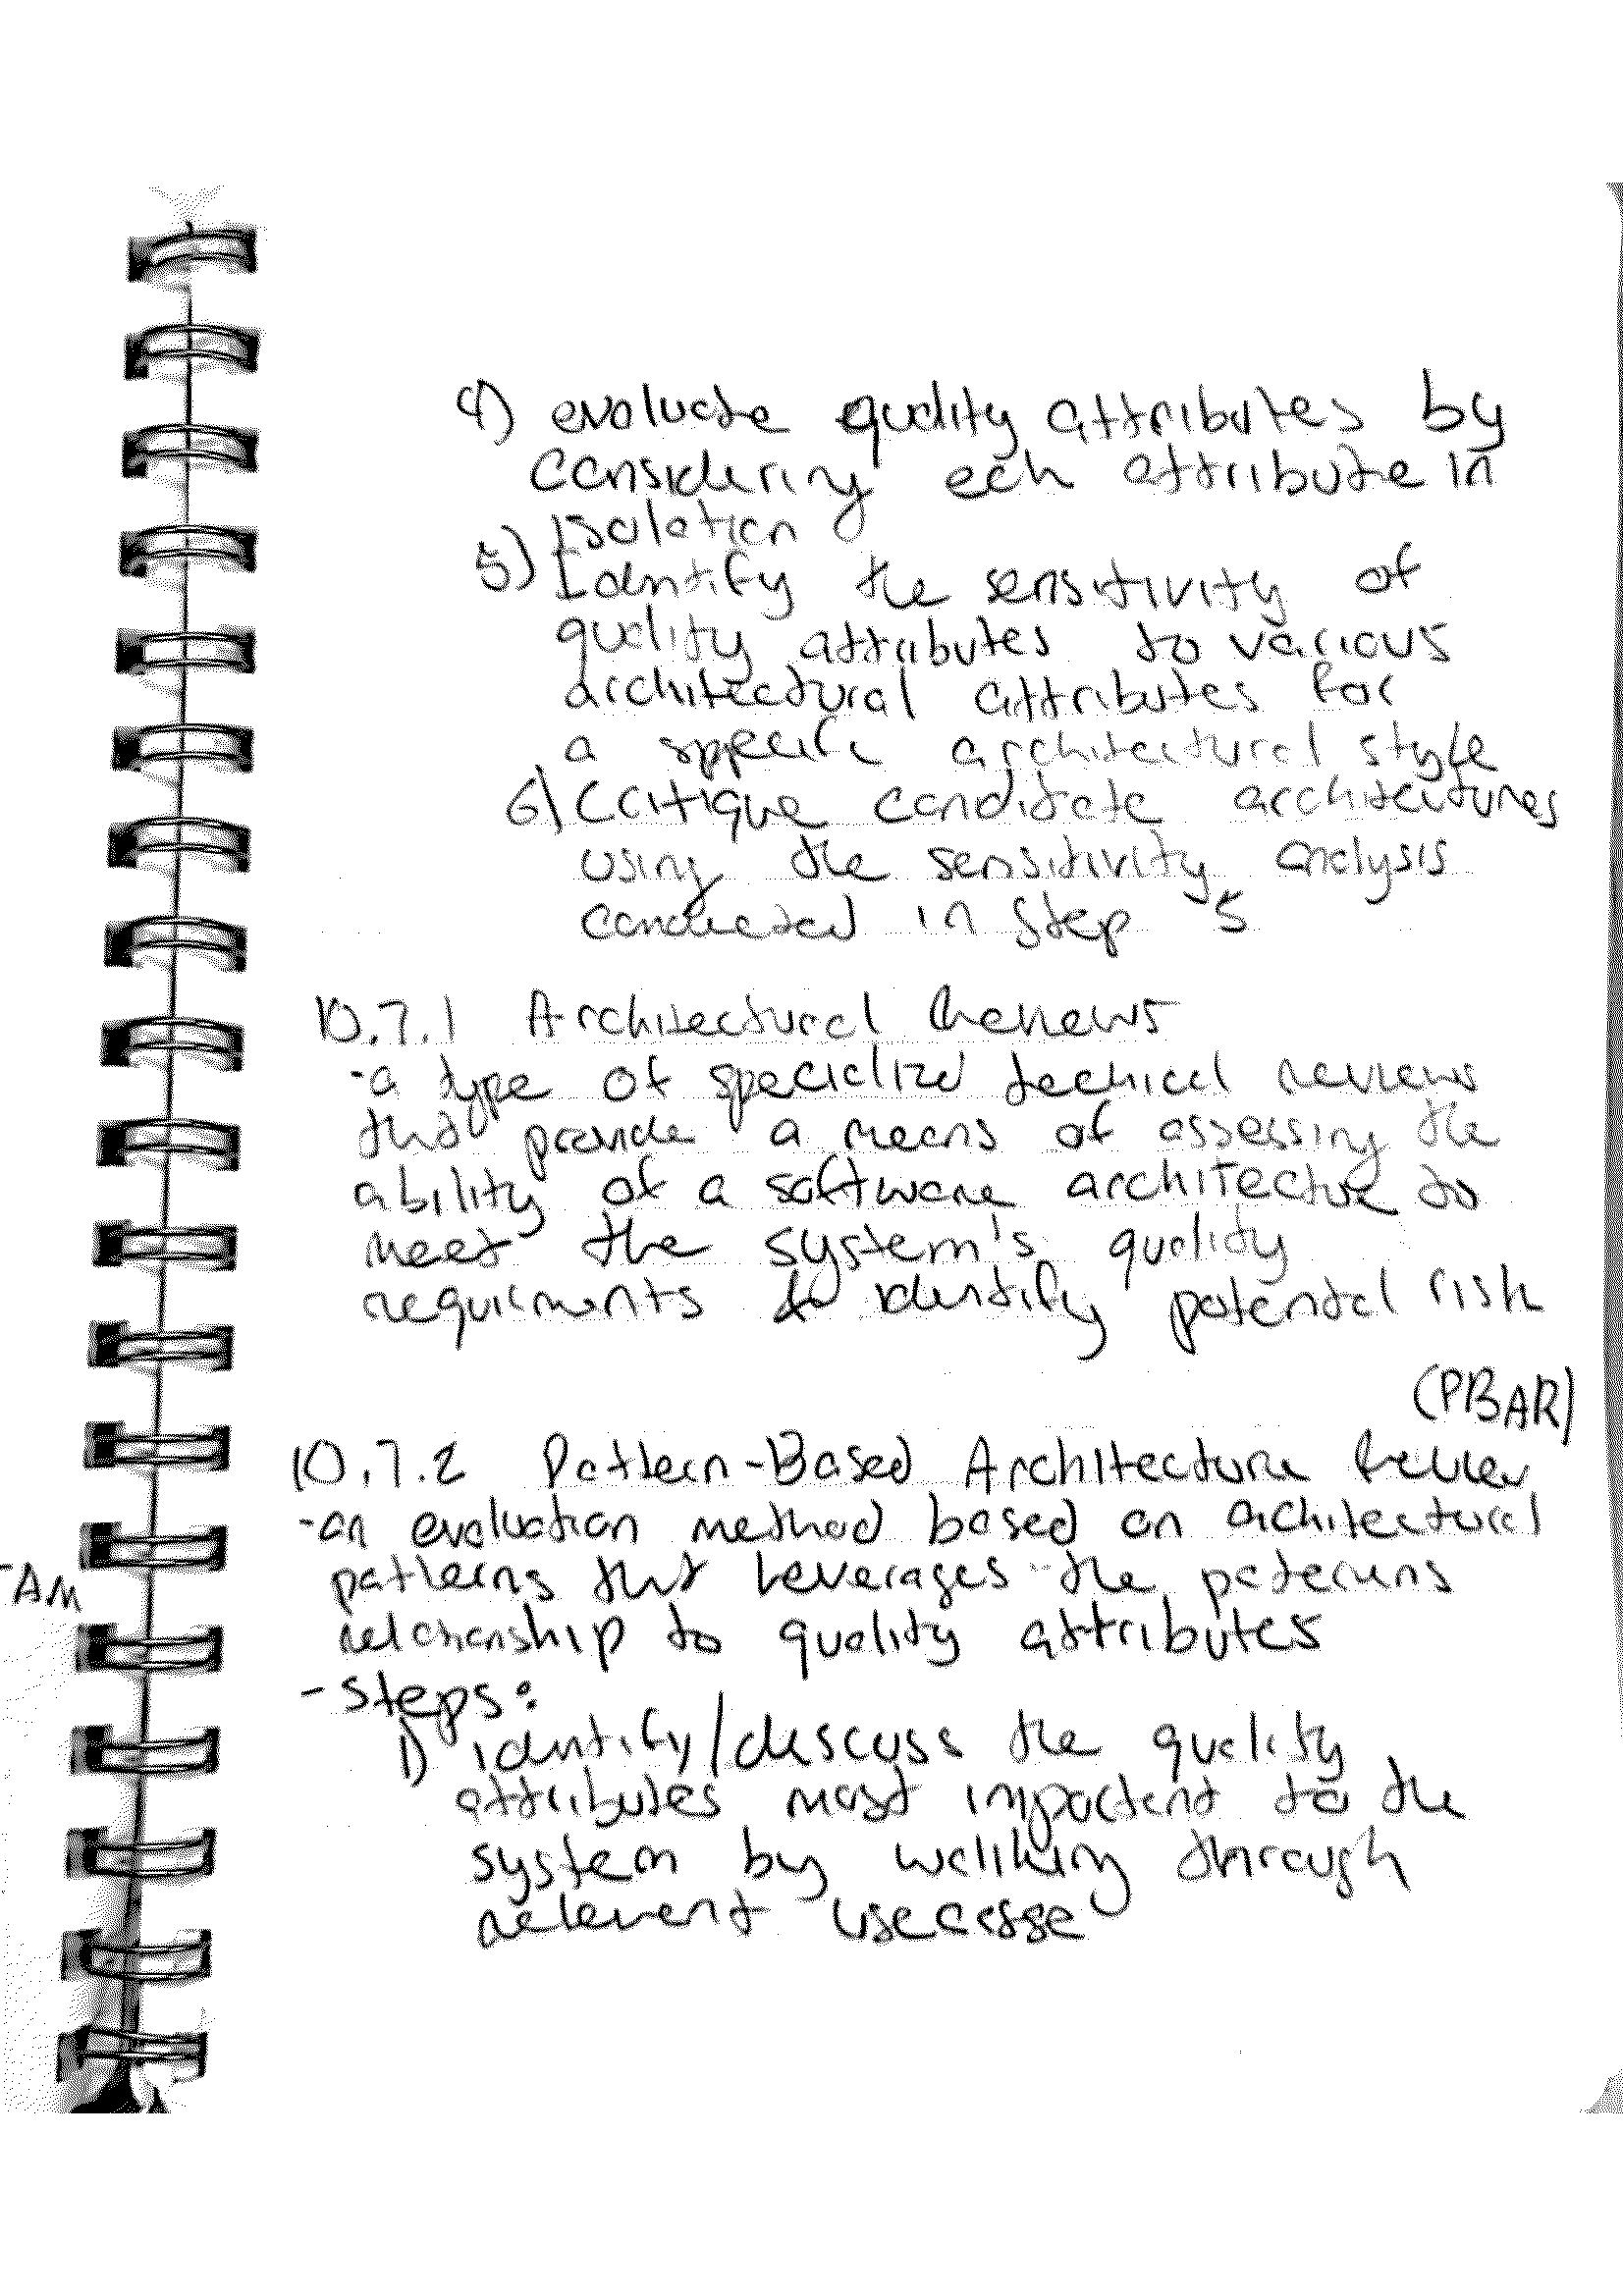 4) evaluate quality attributes by
considering ech attribute in
isolation
5) Identify the sensitivity of
quality attributes to various
architectural attributes for
a specific architectural style
6) Critique candidate architectures
using the sensitivity analysis
conducted in step 5
10.7.1 Architectural Reviews
-a type of specialized techical reviews
that provide a means of assessing the
ability of a software architecture to
meet the system's quality
requirments & identify potental risk
(PBAR)
10.7.2 Pattern-Based Architecture Review
-an evaluation method based on architectural
patterns that leverages the patterns
TAM
relationship to quality attributes
-steps:
1) identify/discuss the quality
attributes most important to the
system by walking through
relevent use